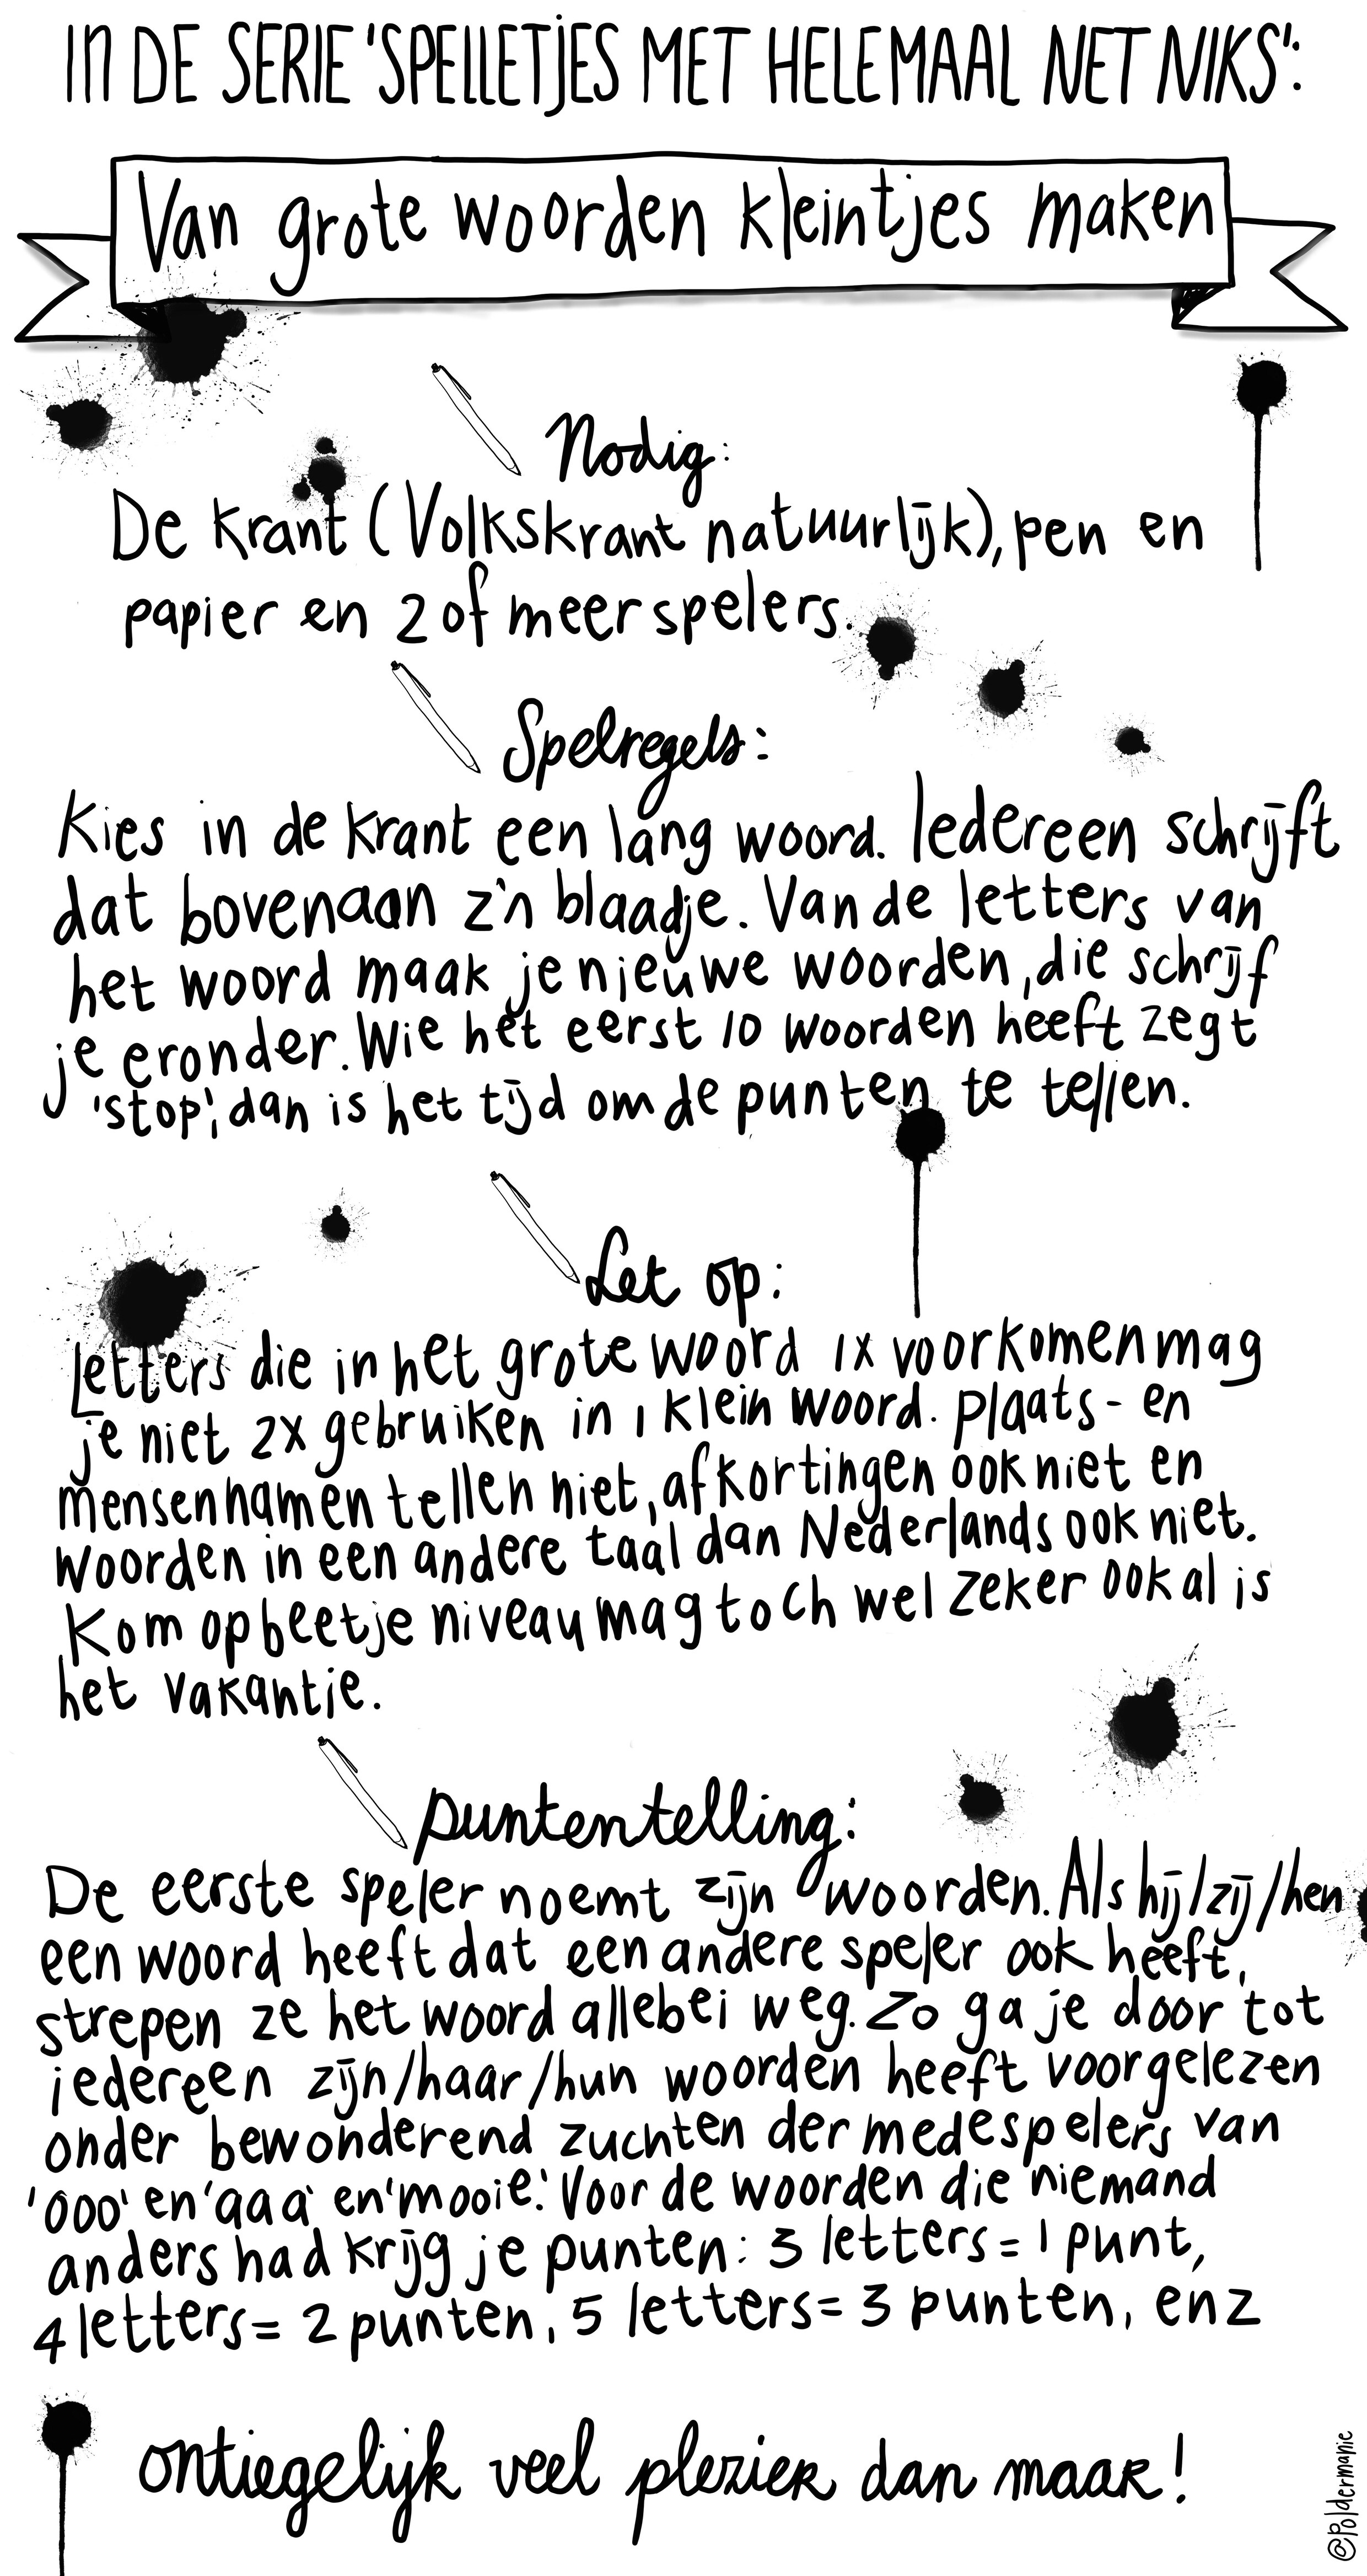 IN DE SERIE 'SPELLETJES MET HELEMAAL NET NIKS':
Van grote woorden kleintjes maken
Nodig:
De krant (Volkskrant natuurlijk), pen en
papier en 2 of meer spelers.
Spelregels:
Kies in de krant een lang woord. Iedereen schrijft
dat bovenaan z'n blaadje. Van de letters van
het woord maak je nieuwe woorden, die schrijf
je eronder. Wie het eerst 10 woorden heeft zegt
'stop', dan is het tijd om de punten te tellen.
Let op:
Letters die in het grote woord 1x voorkomen mag
je niet 2x gebruiken in 1 klein woord. Plaats- en
mensennamen tellen niet, afkortingen ook niet en
woorden in een andere taal dan Nederlands ook niet.
Kom op beetje niveau mag toch wel zeker ook al is
het vakantie.
puntentelling:
De eerste speler noemt zijn woorden. Als hij/zij/hen
een woord heeft dat een andere speler ook heeft,
strepen ze het woord allebei weg. Zo ga je door tot
iedereen zijn/haar/hun woorden heeft voorgelezen
onder bewonderend zuchten der medespelers van
'ooo' en 'aaa' en 'mooie'. Voor de woorden die niemand
anders had krijg je punten: 3 letters = 1 punt,
4 letters = 2 punten, 5 letters = 3 punten, enz
ontiegelijk veel plezier dan maar!
@Poldermanie